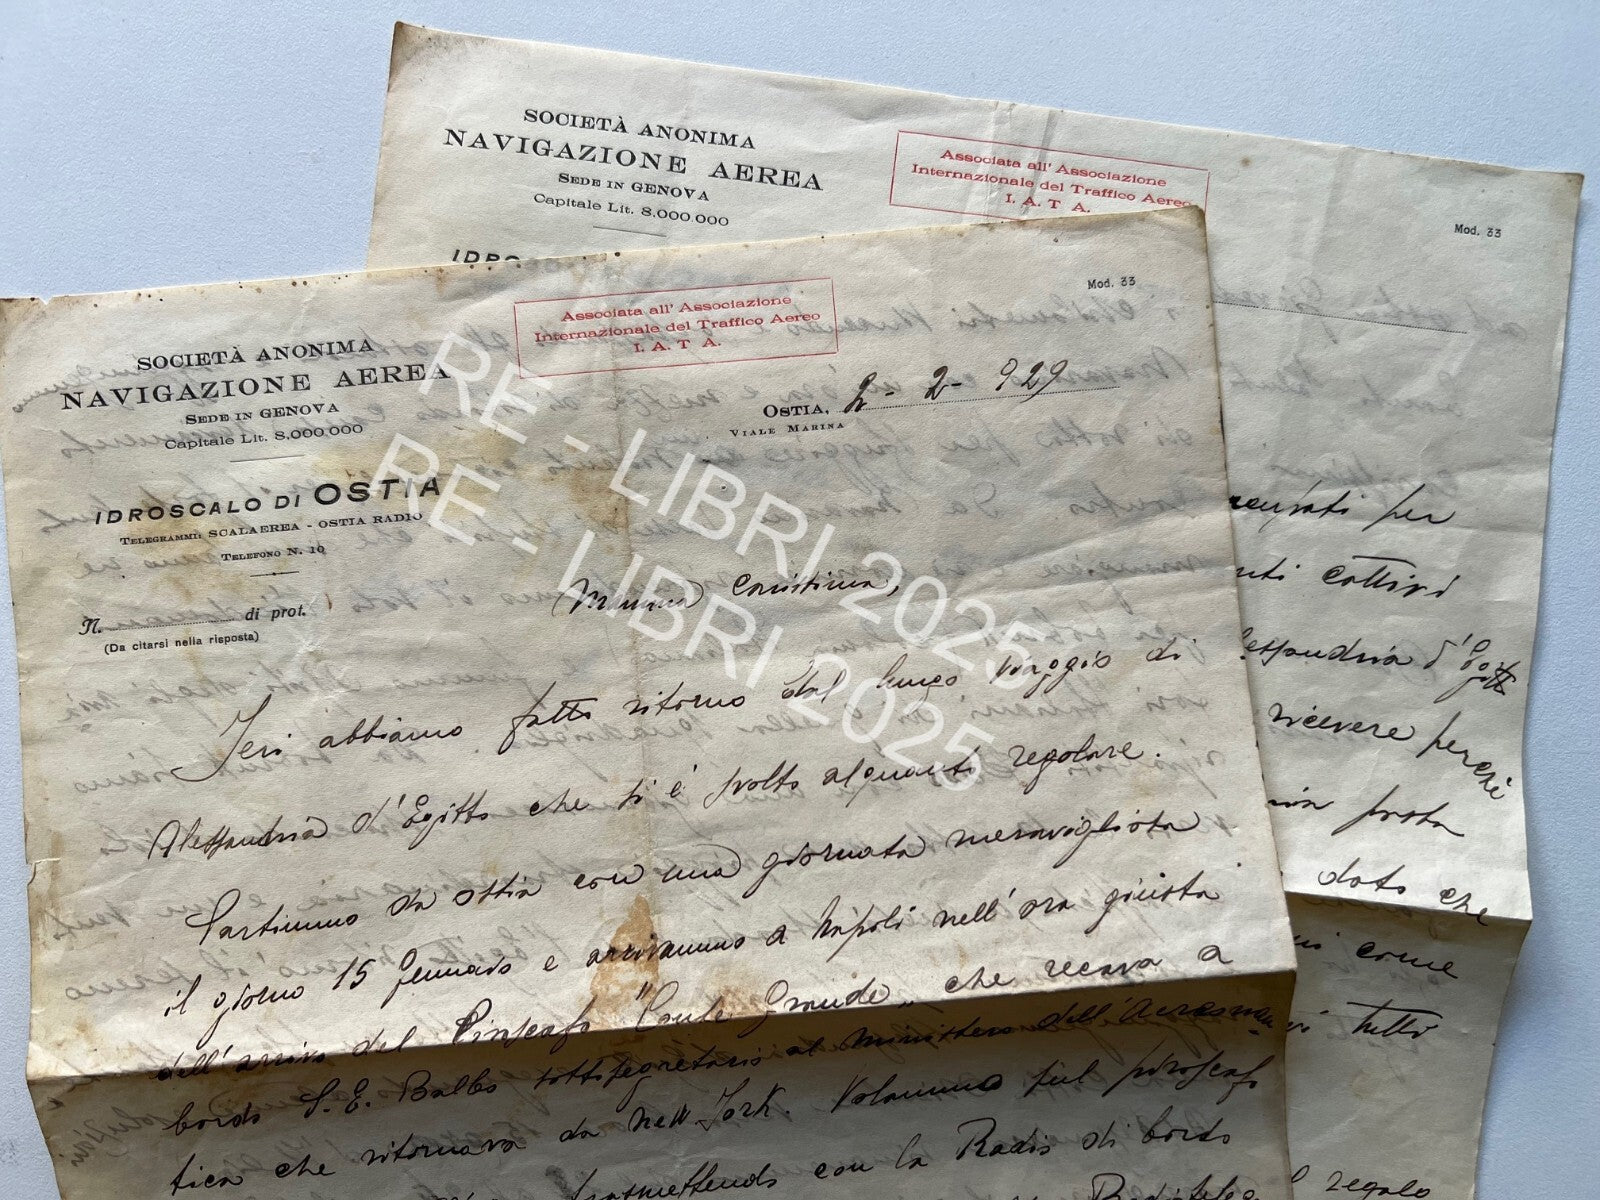 SOCIETÀ ANONIMA
NAVIGAZIONE AEREA
SEDE IN GENOVA
Capitale Lit. 8.000.000
Associata all' Associazione
Internazionale del Traffico Aereo
I. A. T. A.
Mod. 33
per
cattivi
Alessandria d'Egitto
ricevere perché
dato che
come
tutti
regalo
SOCIETÀ ANONIMA
NAVIGAZIONE AEREA
SEDE IN GENOVA
Capitale Lit. 8.000.000
IDROSCALO DI OSTIA
TELEGRAMMI: SCALAEREA - OSTIA RADIO
TELEFONO N. 10
N. di prot.
(Da citarsi nella risposta)
Associata all' Associazione
Internazionale del Traffico Aereo
I. A. T. A.
Mod. 33
OSTIA, 2 - 2 - 929
VIALE MARINA
Mamma carissima,
Jeri abbiamo fatto ritorno dal lungo viaggio di
Alessandria d'Egitto che si è svolto alquanto regolare.
Partimmo da Ostia con una giornata meravigliosa
il giorno 15 Gennaio e arrivammo a Napoli nell'ora giusta
dell'arrivo del Piroscafo "Conte Grande" che recava a
bordo S. E. Balbo sottosegretario al ministero dell'Aeronau-
tica che ritornava da New Jork. Volammo sul piroscafo
trasmettendo con la Radio di bordo
RE - LIBRI 2025
RE - LIBRI 2025